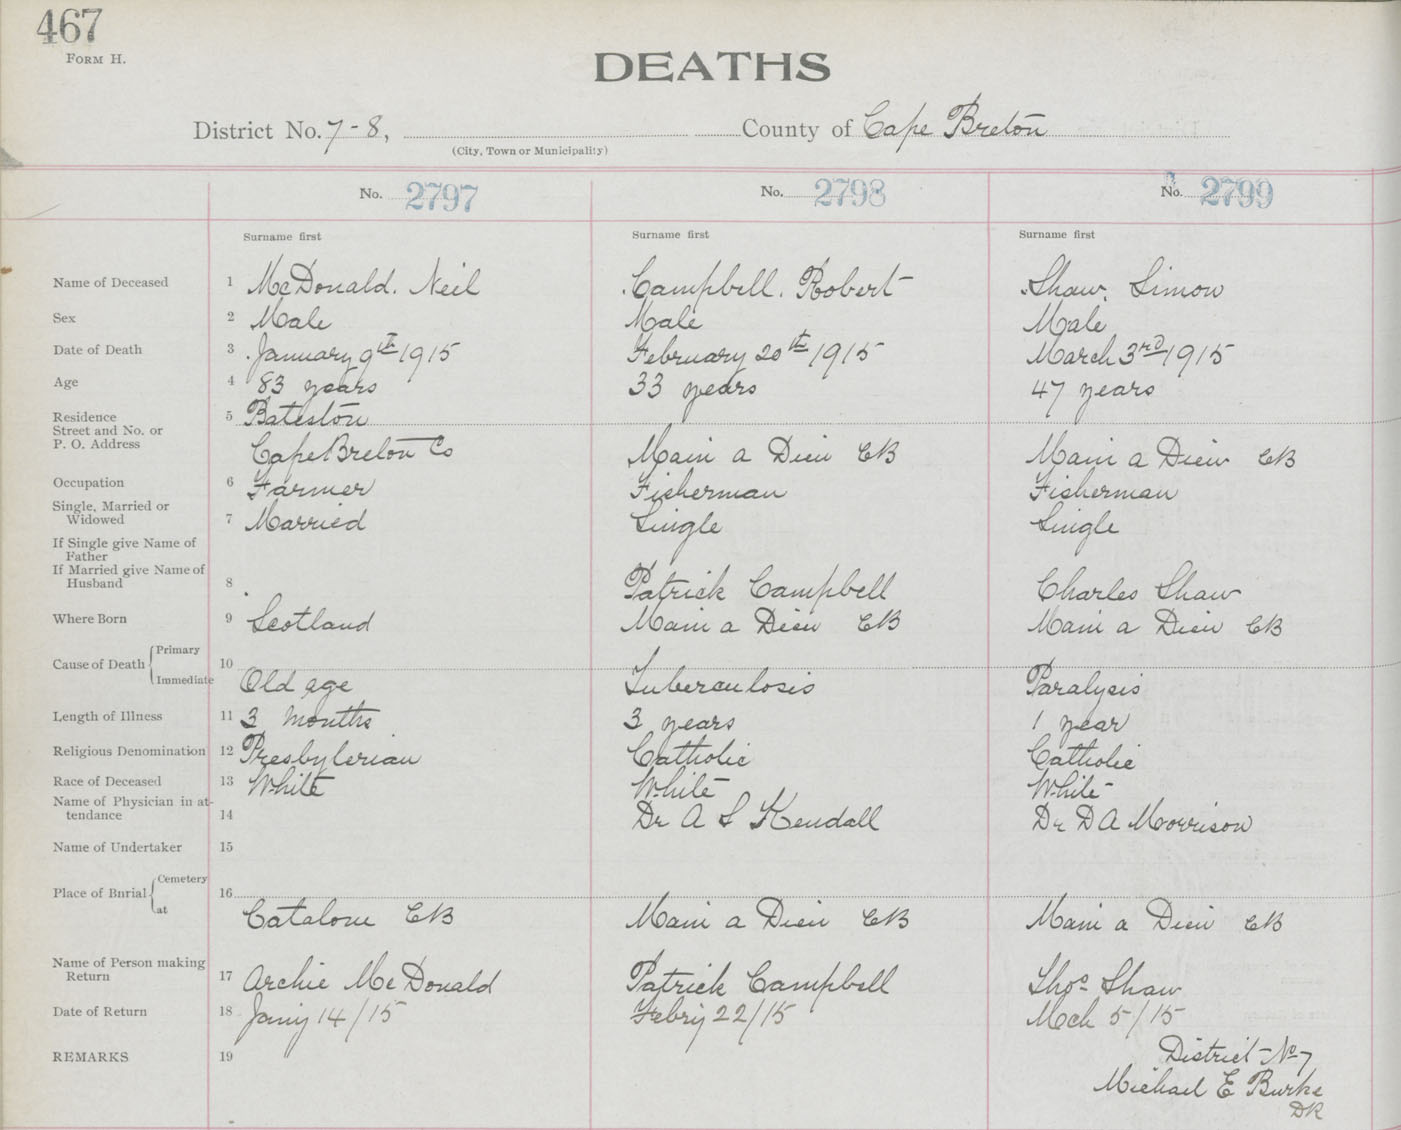 467
FORM H.
DEATHS
District No. 7-8, County of Cape Breton
(City, Town or Municipality)
No. 2797 No. 2798 No. 2799
Surname first Surname first Surname first
Name of Deceased 1 McDonald. Neil Campbell. Robert Shaw. Simon
Sex 2 Male Male Male
Date of Death 3 January 9th 1915 February 20th 1915 March 3rd 1915
Age 4 83 years 33 years 47 years
Residence 5 Bateston
Street and No. or
P. O. Address Cape Breton Co Main a Dieu CB Main a Dieu CB
Occupation 6 Farmer Fisherman Fisherman
Single, Married or
Widowed 7 Married Single Single
If Single give Name of
Father
If Married give Name of
Husband 8 Patrick Campbell Charles Shaw
Where Born 9 Scotland Main a Dieu CB Main a Dieu CB
Cause of Death Primary 10
Immediate Old age Tuberculosis Paralysis
Length of Illness 11 3 months 3 years 1 year
Religious Denomination 12 Presbyterian Catholic Catholic
Race of Deceased 13 White White White
Name of Physician in at-
tendance 14 Dr A S Kendall Dr D A Morrison
Name of Undertaker 15
Place of Burial Cemetery 16
at Catalone CB Main a Dieu CB Main a Dieu CB
Name of Person making
Return 17 Archie McDonald Patrick Campbell Thos Shaw
Date of Return 18 Jany 14/15 Febry 22/15 Mch 5/15
REMARKS 19 District No 7
Michael E Burke
DR